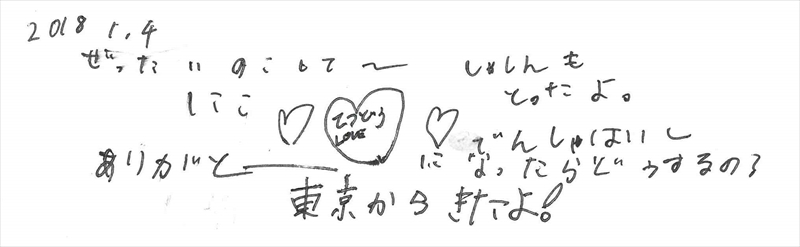 2018 1.4
ぜったいのこして〜 しゃしんも
とったよ。
てつどう
LOVE
ありがと――― でんしゃはいし
に なったらどうするの?
東京からきたよ!